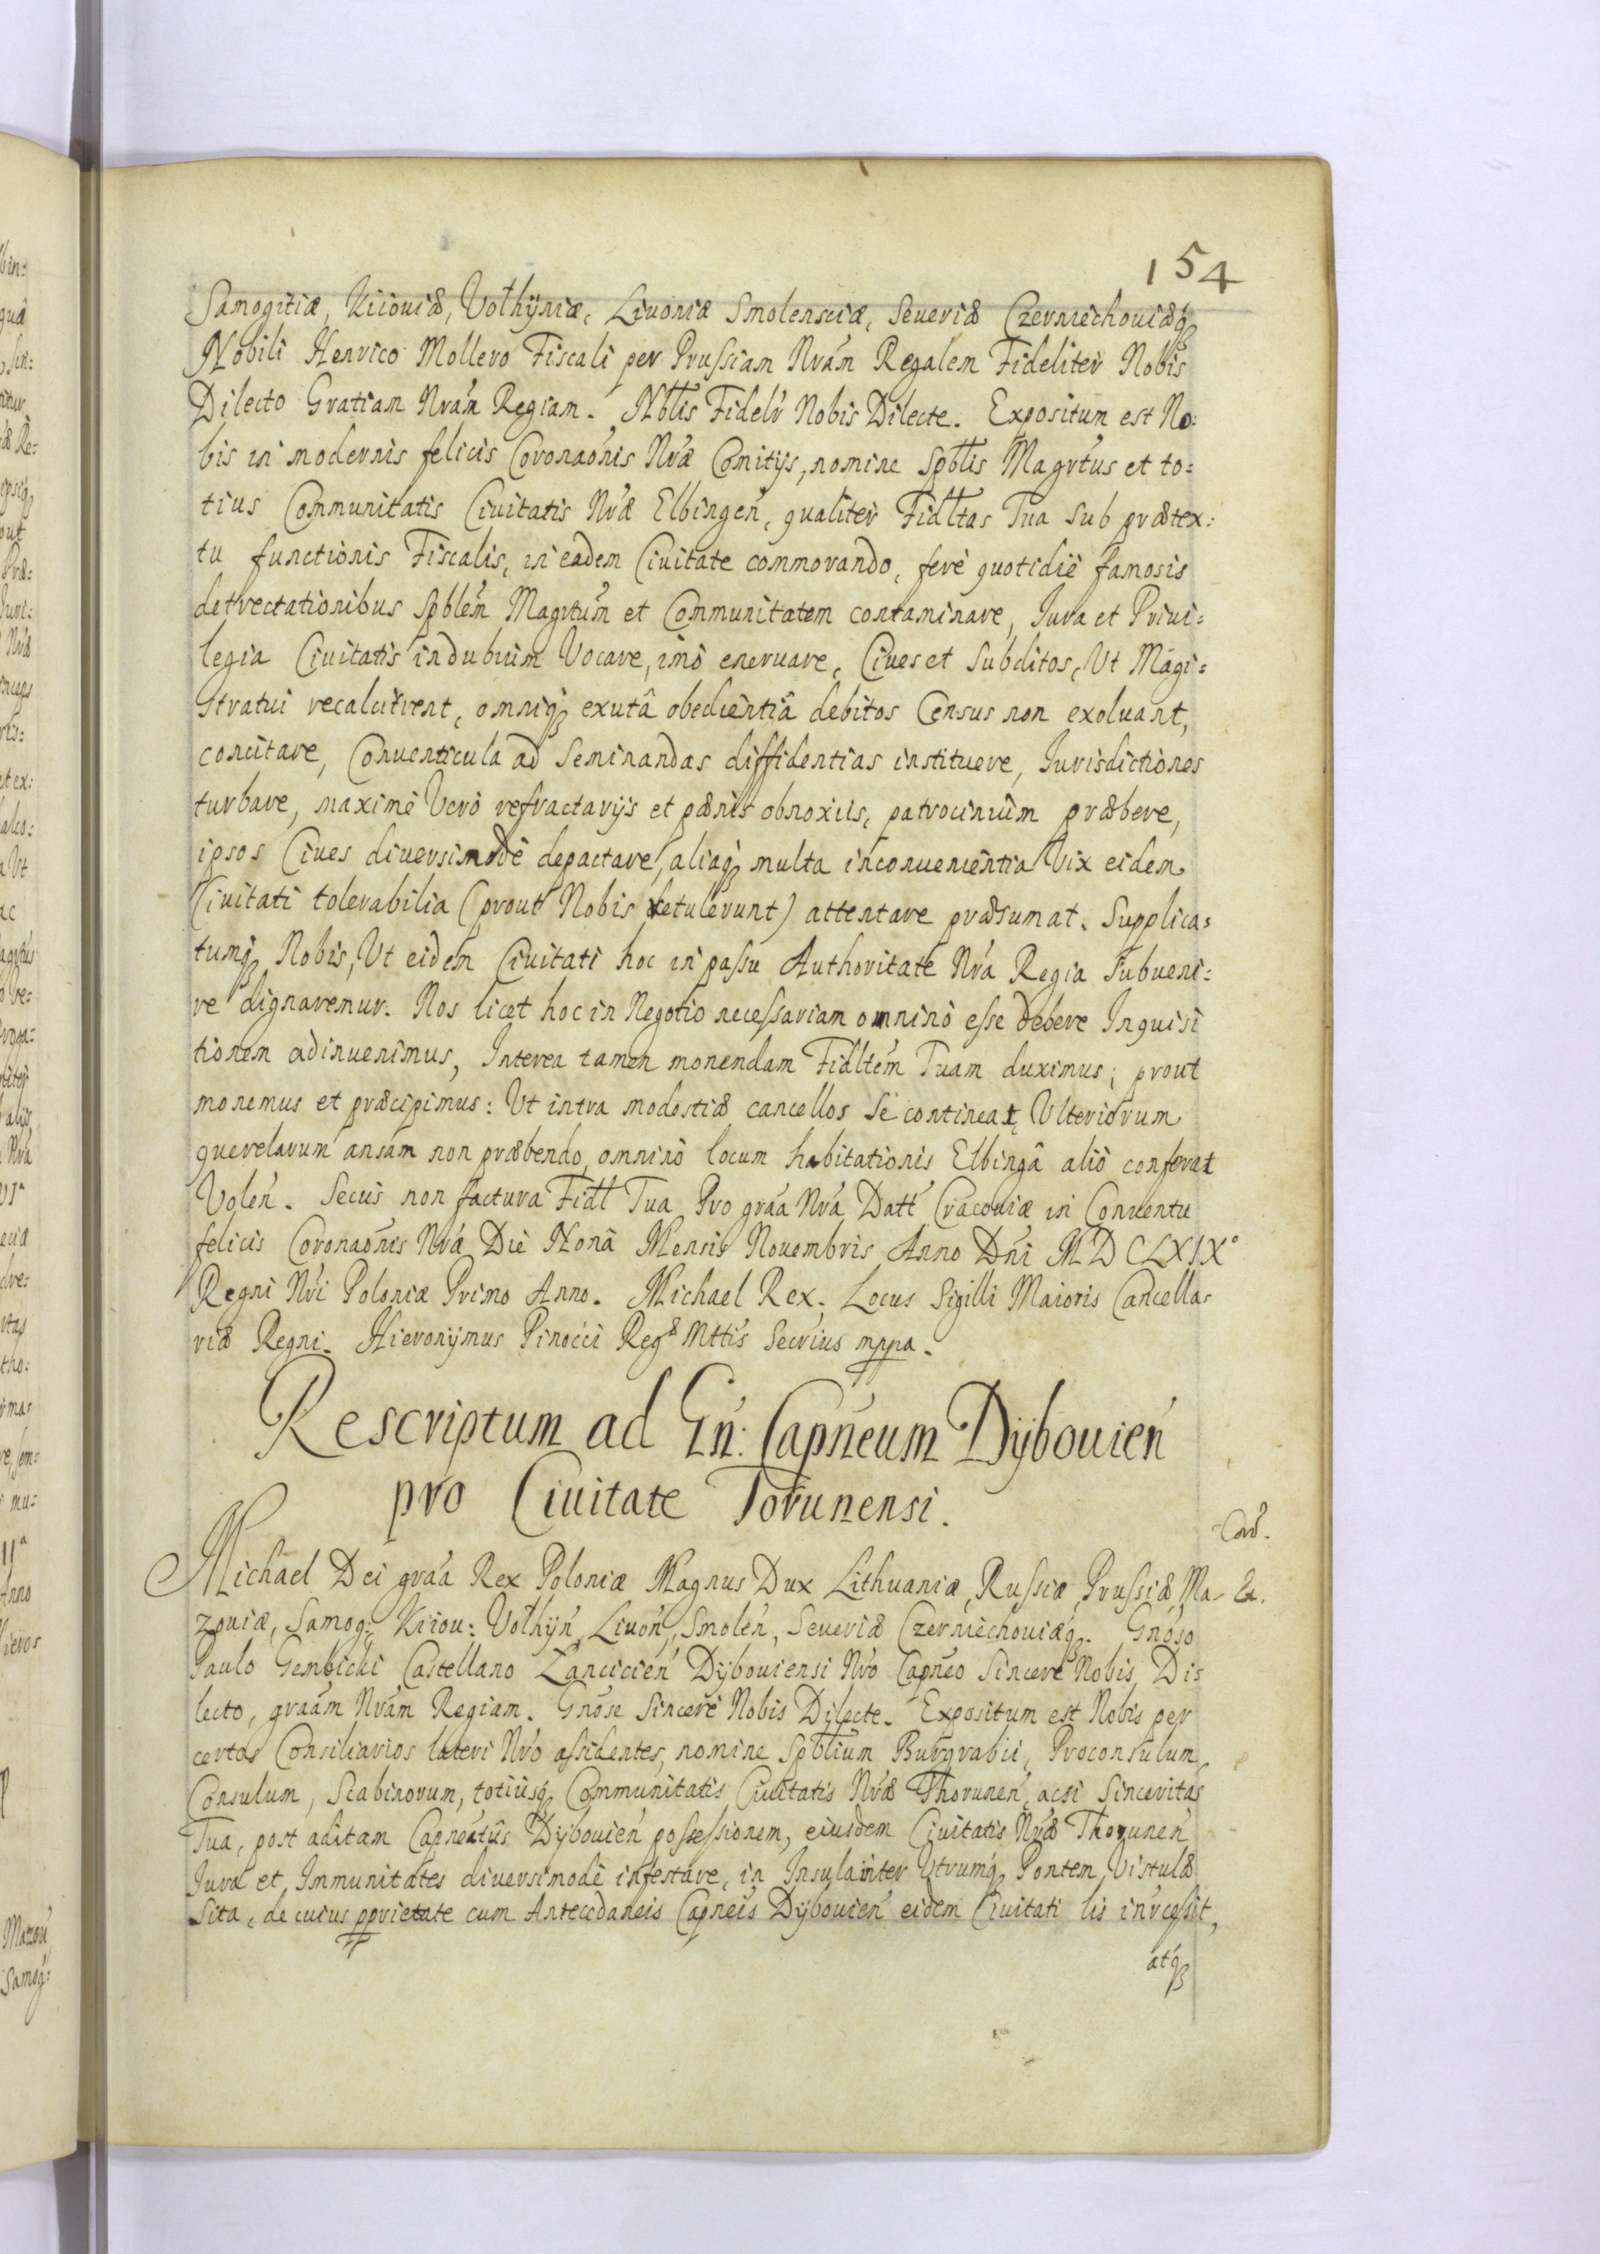 154
Samogitiæ, Kiiouiæ, Volhÿniæ, Liuoniæ Smolensciæ, Seueriæ Czerniechouiæq́ꝫ
Nobili Henrico Mollero Fiscali per Prussiam Nrám Regalem Fideliter Nobis
Dilecto Gratiam Nrám Regiam. Nbĺis Fidelr̃ Nobis Dilecte. Expositum est No:
bis in modernis felicis Coronaónis Nrǽ Comitijs, nomine Spbĺis Magrtús et to:
tius Communitatis Ciuitatis Nrǽ Elbingeń, qualiter Fidĺtas Tua sub prætex:
tu functionis Fiscalis, in eadem Ciuitate commorando, ferè quotidiè famosis
detrectationibus Spblém Magrtúm et Communitatem contaminare, Iura et Priui:
legia Ciuitatis in dubium Vocare, imò eneruare, Ciues et Subditos, Vt Magi:
stratui recalcitrent, omniq́ꝫ exutâ obedientiâ debitos Census non exoluant,
concitare, Conuenticula ad Seminandas diffidentias instituere, Iurisdictiones
turbare, maximè Verò refractarijs et pænis obnoxiis, patrocinium præbere,
ipsos Ciues diuersimodè depactare, aliaq́ꝫ multa inconuenientia Vix eidem
Ciuitati tolerabilia (prout Nobis detulerunt) attentare præsumat. Supplica:
tumq́ꝫ Nobis, Vt eidem Ciuitati hoc in passu Authoritate Nrá Regia Subueni:
re dignaremur. Nos licet hoc in Negotio necessariam omninò esse debere Inquisi
tionem adinuenimus, Interea tamen monendam Fidltém Tuam duximus; prout
monemus et præcipimus: Vt intra modestiæ cancellos se contineat, Vlteriorum
querelarum ansam non præbendo, omninò locum habitationis Elbingâ aliò conferat
Voleń. Secus non factura Fidĺ Tua Pro graá Nrá Datt́ Cracouiæ in Conuentu
felicis Coronaónis Nrǽ Die Nonâ Mensis Nouembris Anno Dńi MDCLXIX°
Regni Nrí Poloniæ Primo Anno. Michael Rex. Locus Sigilli Maioris Cancella:
riæ Regni. Hieronÿmus Pinocci Regæ Mttís Secríus mppa.
Rescriptum ad Gń: Capńeum Dÿbouień
pro Ciuitate Torunensi.
Michael Dei graá Rex Poloniæ Magnus Dux Lithuaniæ, Russiæ, Prussiæ, Ma-
zouiæ, Samog: Kiiou: Volhÿń, Liuoń, Smoleń, Seueriæ Czerniechouiæq́ꝫ. Gnóso
Paulo Gembicki Castellano Lancicień Dÿbouiensi Nró Capńeo Sincere Nobis Di:
lecto, graám Nrám Regiam. Gnóse Sincerè Nobis Dilecte. Expositum est Nobis per
certos Consiliarios lateri Nró assidentes, nomine Spbĺium Burgrabii, Proconsulum,
Consulum, Scabinorum, totiusq́ꝫ Communitatis Ciuitatis Nrǽ Thoruneń, acsi Sinceritas
Tua, post aditam Capneátûs Dÿbouień possessionem, eiusdem Ciuitatis Nrǽ Thoruneń
Iura et Immunitates diuersimodè infestare, in Insula inter Vtrumq́ꝫ Pontem Vistulæ
Sita, de cuius pprietate cum Antecedaneis Capńeis Dÿbouień eidem Ciuitati lis inrcessit,
atq́ꝫ